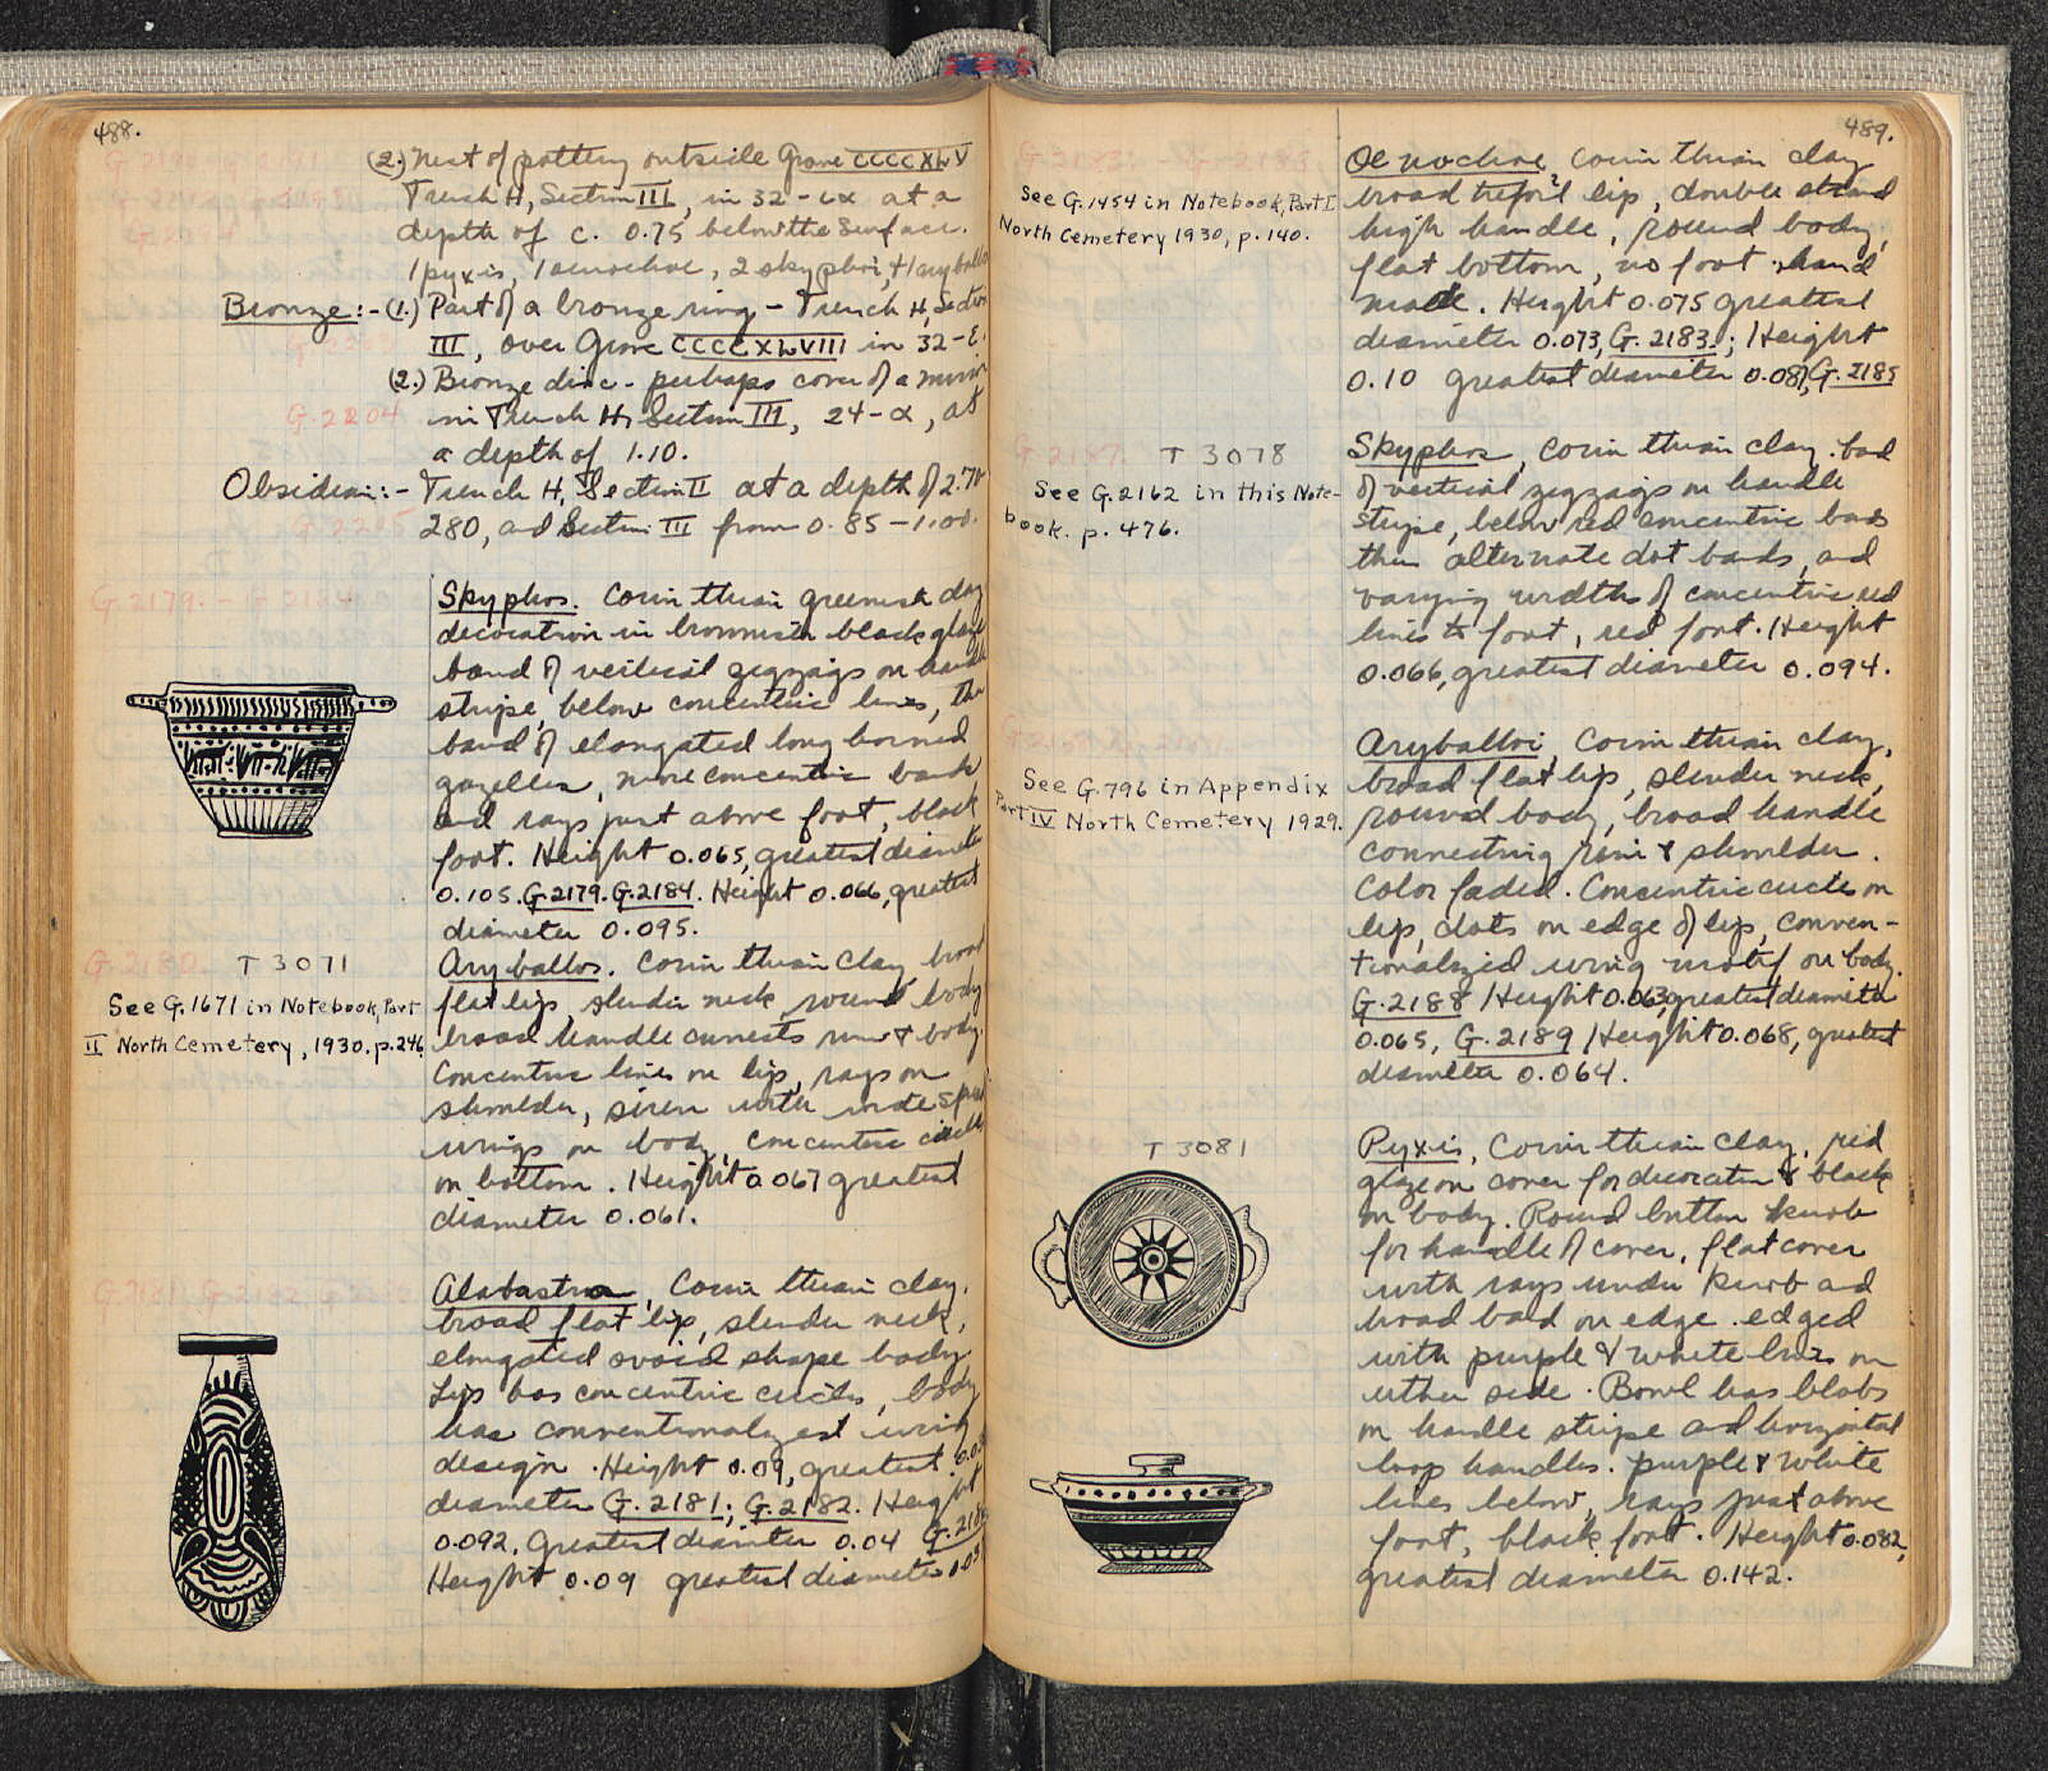 488.
(2.) Nest of pottery outside Grave CCCCXLV
Trench H, Section III, in 32-ια at a
depth of c. 0.75 below the surface.
1 pyxis, 1 oenochoe, 2 skyphoi, + 1 aryballos
Bronze:- (1.) Part of a bronze ring - Trench H, Section
III, over Grave CCCCXLVIII in 32-E.
(2.) Bronze disc - perhaps cover of a mirror
G.2204 in Trench H, Section III, 24-α, at
a depth of 1.10.
Obsidian:- Trench H, Section II at a depth of 2.70
280, and Section III from 0.85-1.00.
G.2205
G.2179. - G.2184
Skyphos. Corinthian greenish clay
decoration in brownish black glaze
band of vertical zigzags on handle
stripe, below concentric lines, then
band of elongated long horned
gazelles, more concentric bands
and rays just above foot, black
foot. Height 0.065, greatest diameter
0.105. G.2179. G.2184. Height 0.066, greatest
diameter 0.095.
G.2180. T 3071
See G.1671 in Notebook, Part
II North Cemetery, 1930. p.246.
Aryballos. Corinthian clay, broad
flat lip, slender neck, round body
broad handle connects rim + body.
Concentric lines on lip, rays on
shoulder, siren with wide spread
wings on body, concentric circles
on bottom. Height 0.067 greatest
diameter 0.061.
G.2181. G.2182.
Alabastra, Corinthian clay,
broad flat lip, slender neck,
elongated ovoid shape body.
Lip has concentric circles, body
has conventionalized wing
design. Height 0.09, greatest
diameter G.2181; G.2182. Height
0.092, Greatest diameter 0.04
Height 0.09 greatest diameter
489.
G.2183. G.2185
See G.1454 in Notebook, Part I
North Cemetery 1930, p.140.
Oenochoe, Corinthian clay
broad trefoil lip, double strand
high handle, round body,
flat bottom, no foot, hand
made. Height 0.075 greatest
diameter 0.073, G.2183.; Height
0.10 greatest diameter 0.087, G.2185
G.2187. T 3078
See G.2162 in this Note-
book. p.476.
Skyphos, Corinthian clay. band
of vertical zigzags on handle
stripe, below red concentric bands
then alternate dot bands, and
varying widths of concentric red
lines to foot, red foot. Height
0.066, greatest diameter 0.094.
See G.796 in Appendix
Part IV North Cemetery 1929.
Aryballoi, Corinthian clay,
broad flat lip, slender neck,
round body, broad handle
connecting rim & shoulder.
Color faded. Concentric circles on
lip, dots on edge of lip, conven-
tionalized wing motif on body.
G.2188 Height 0.063, greatest diameter
0.065, G.2189 Height 0.068, greatest
diameter 0.064.
T 3081
Pyxis, Corinthian clay, red
glaze on cover for decoration & black
on body. Round button knob
for handle of cover, flat cover
with rays under knob and
broad band on edge. edged
with purple & white lines on
either side. Bowl has blobs
on handle stripe and horizontal
loop handles. purple & white
lines below, rays just above
foot, black foot. Height 0.082,
greatest diameter 0.142.